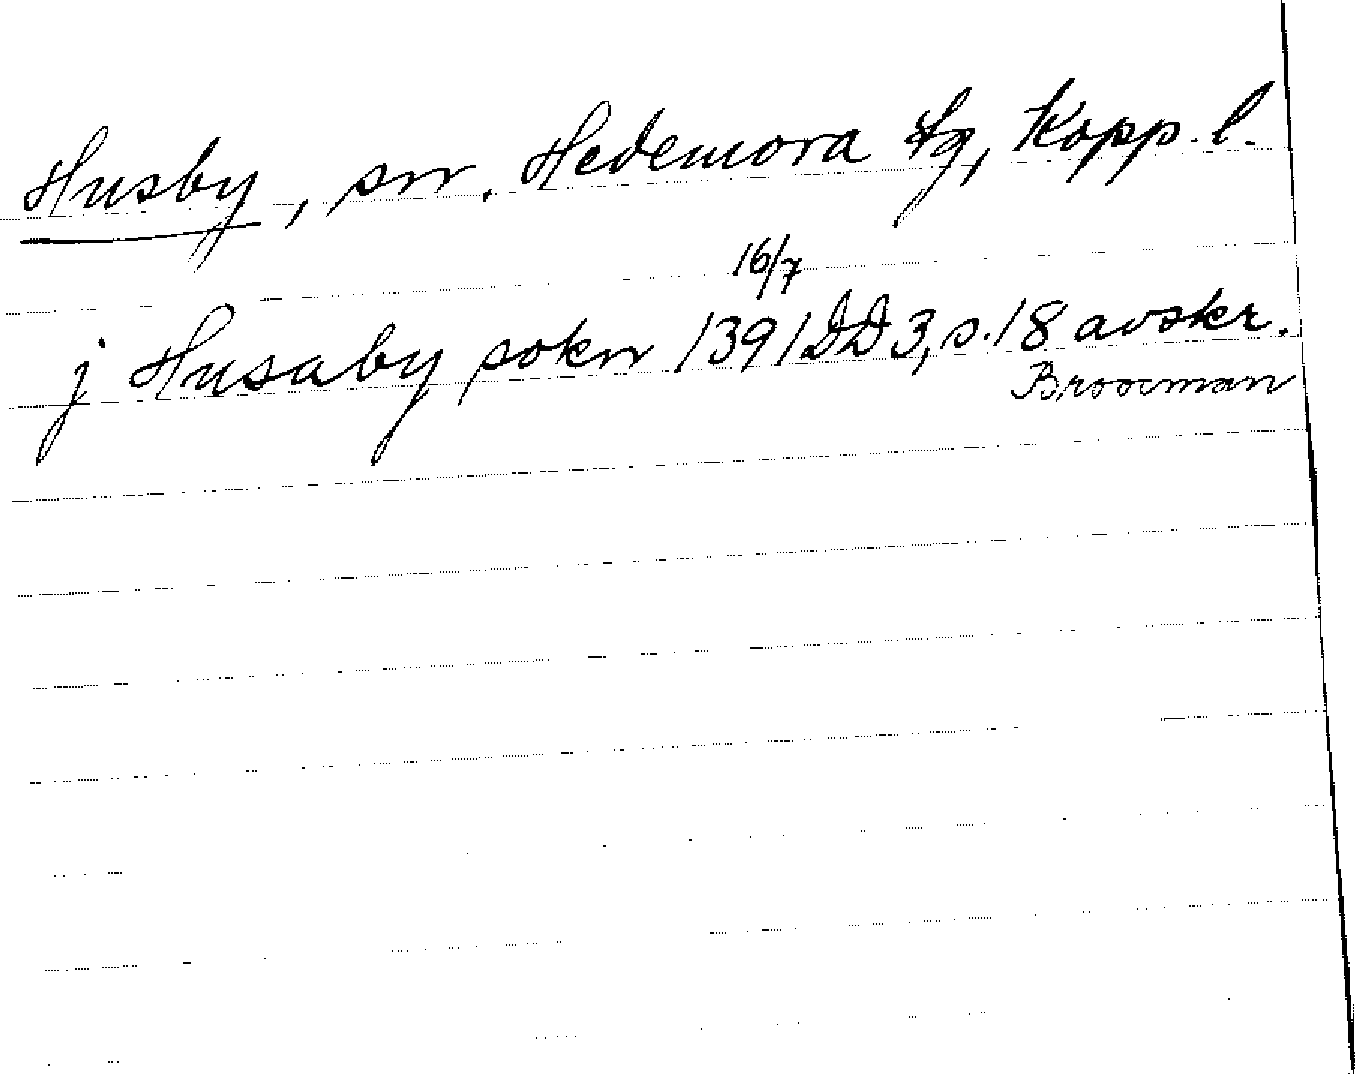 Husby, sn. Hedemora tg, Kopp. l.
16/7
j Husaby sokn 1391 DD 3, s. 18 avskr.
Broocman